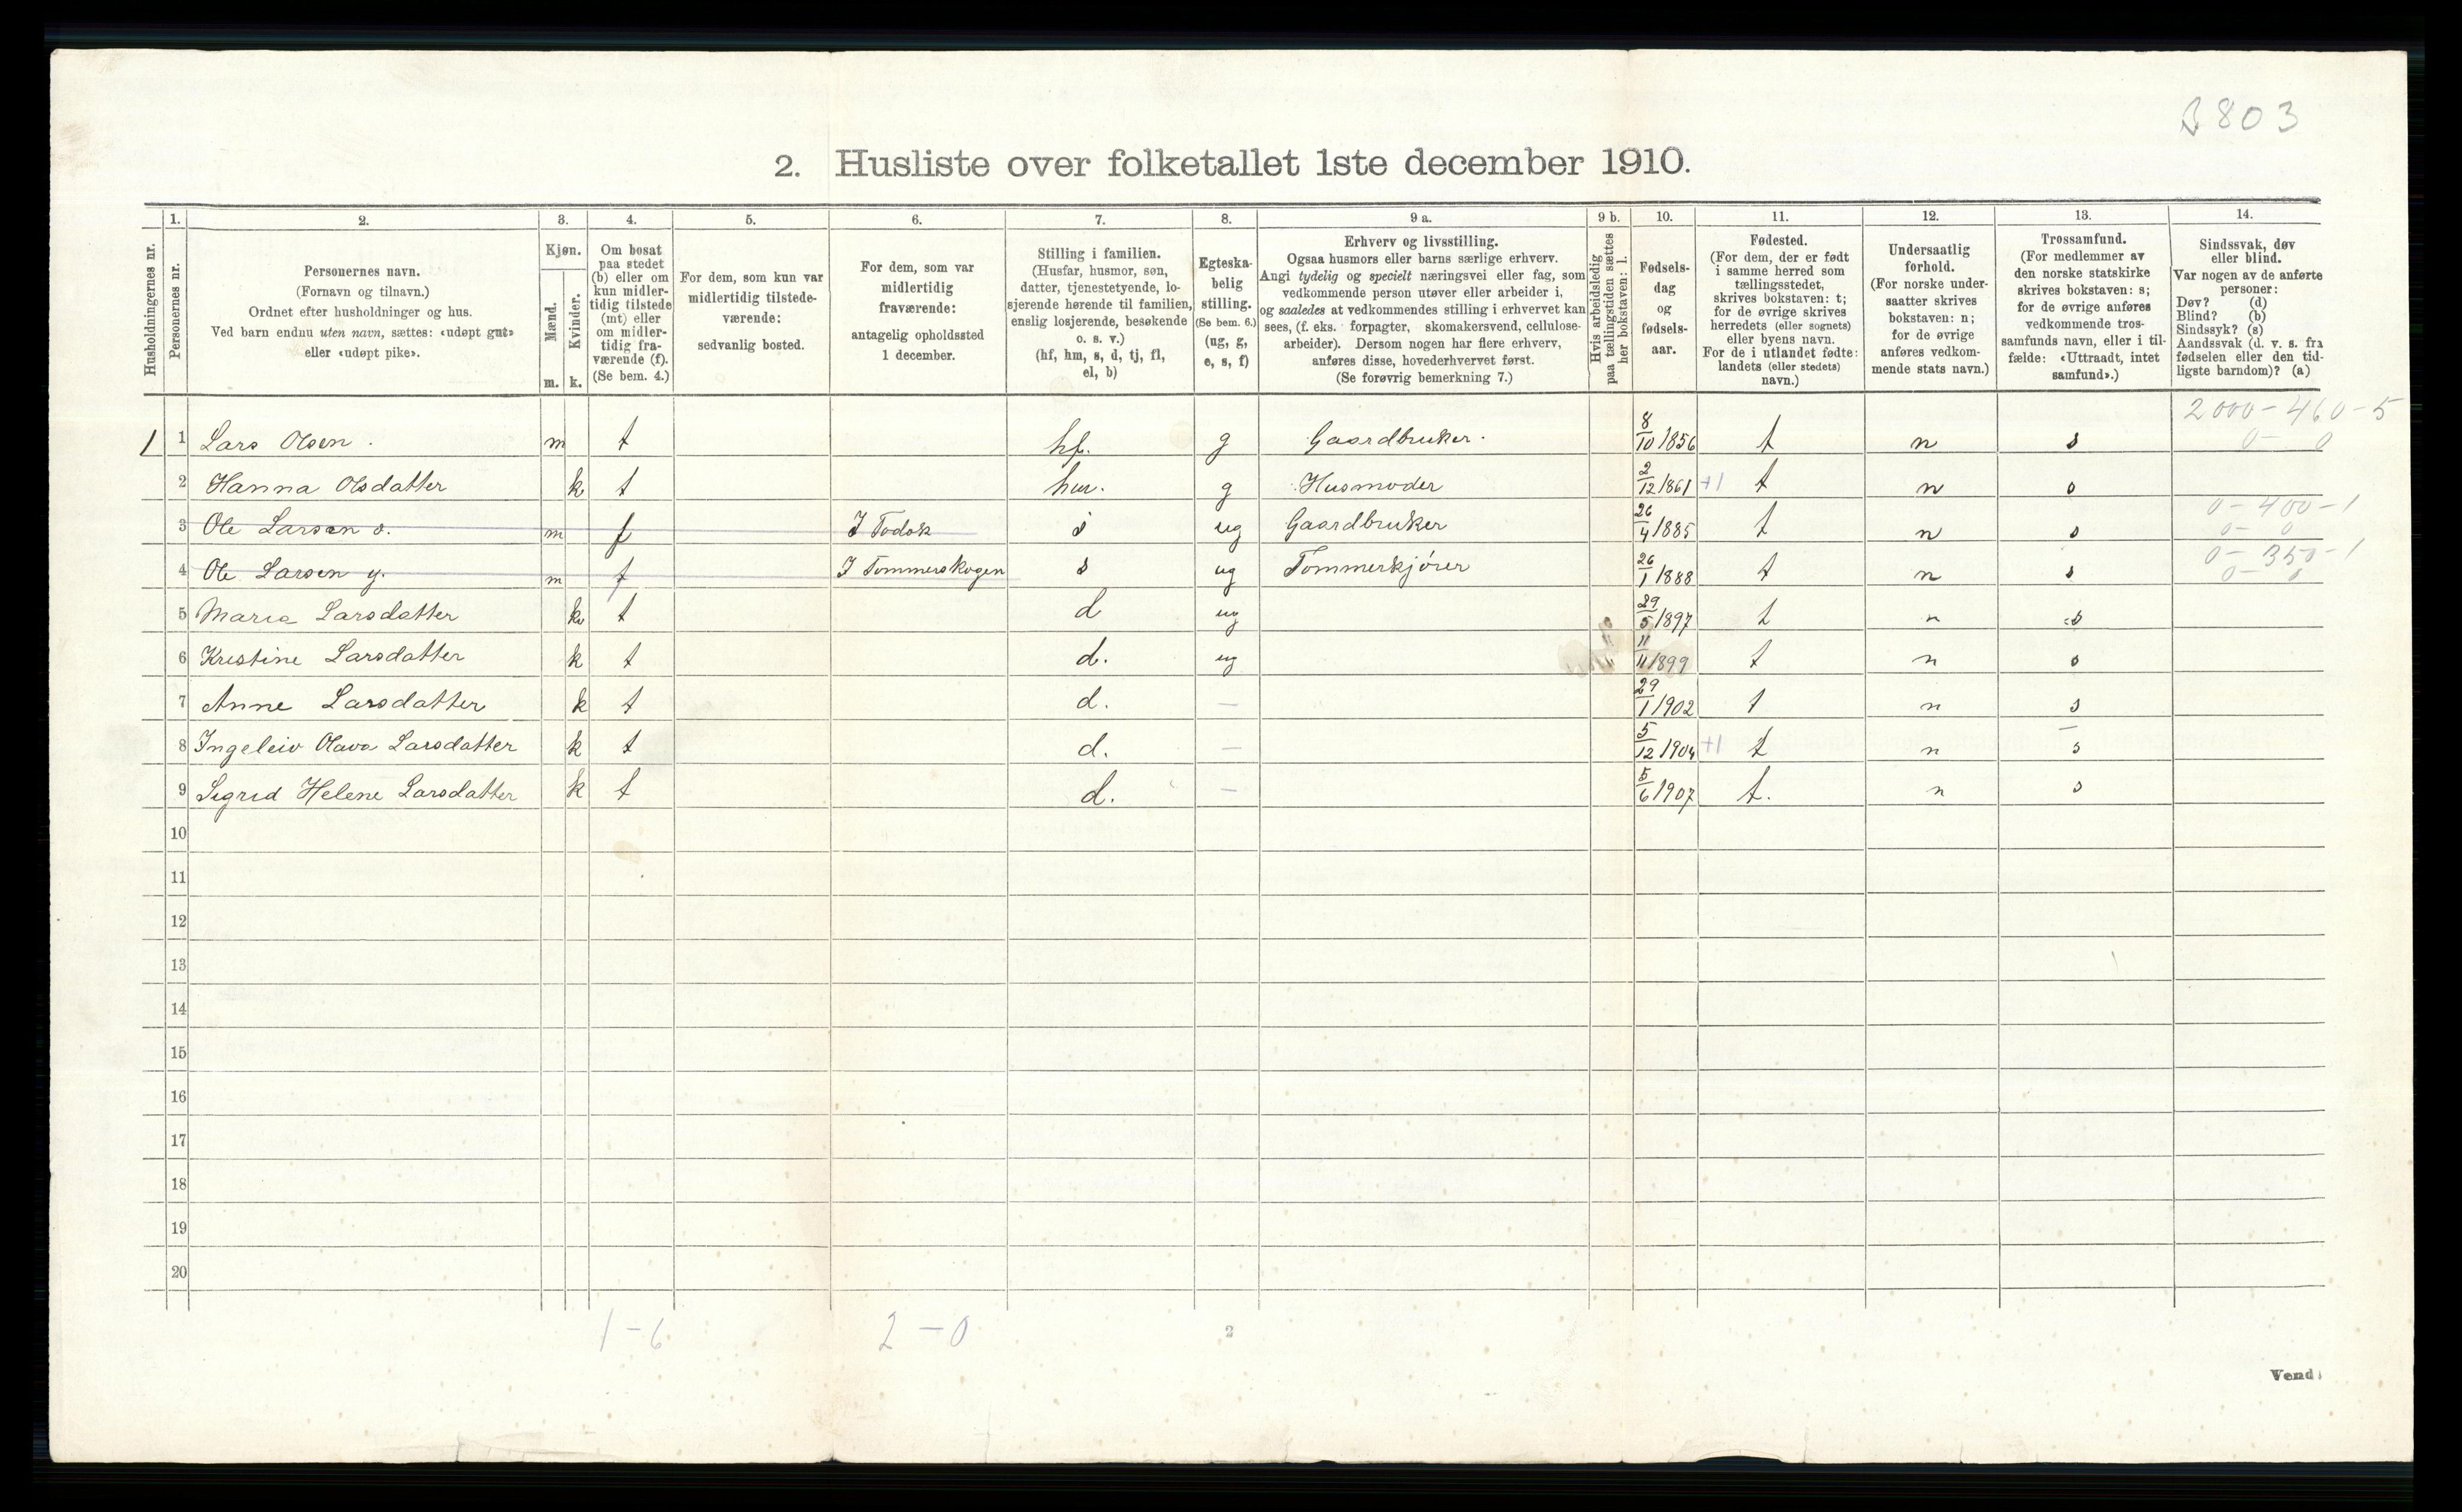 B803
2. Husliste over folketallet 1ste december 1910.
1. 2. 3. 4. 5. 6. 7. 8. 9 a. 9 b. 10. 11. 12. 13. 14.
Husholdningernes nr.
Personernes nr.
Personernes navn.
(Fornavn og tilnavn.)
Ordnet efter husholdninger og hus.
Ved barn endnu uten navn, sættes: «udøpt gut»
eller «udøpt pike».
Kjøn.
Mænd.
Kvinder.
m. k.
Om bosat
paa stedet
(b) eller om
kun midler-
tidig tilstede
(mt) eller
om midler-
tidig fra-
værende (f).
(Se bem. 4.)
For dem, som kun var
midlertidig tilstede-
værende:
sedvanlig bosted.
For dem, som var
midlertidig
fraværende:
antagelig opholdssted
1 december.
Stilling i familien.
(Husfar, husmor, søn,
datter, tjenestetyende, lo-
sjerende hørende til familien,
enslig losjerende, besøkende
o. s. v.)
(hf, hm, s, d, tj, fl,
el, b)
Egteska-
belig
stilling.
(Se bem. 6.)
(ug, g,
e, s, f)
Erhverv og livsstilling.
Ogsaa husmors eller barns særlige erhverv.
Angi tydelig og specielt næringsvei eller fag, som
vedkommende person utøver eller arbeider i,
og saaledes at vedkommendes stilling i erhvervet kan
sees, (f. eks. forpagter, skomakersvend, cellulose-
arbeider). Dersom nogen har flere erhverv,
anføres disse, hovederhvervet først.
(Se forøvrig bemerkning 7.)
Hvis arbeidsledig
paa tællingstiden sættes
her bokstaven: l.
Fødsels-
dag
og
fødsels-
aar.
Fødested.
(For dem, der er født
i samme herred som
tællingsstedet,
skrives bokstaven: t;
for de øvrige skrives
herredets (eller sognets)
eller byens navn.
For de i utlandet fødte:
landets (eller stedets)
navn.)
Undersaatlig
forhold.
(For norske under-
saatter skrives
bokstaven: n;
for de øvrige
anføres vedkom-
mende stats navn.)
Trossamfund.
(For medlemmer av
den norske statskirke
skrives bokstaven: s;
for de øvrige anføres
vedkommende tros-
samfunds navn, eller i til-
fælde: «Uttraadt, intet
samfund».)
Sindssvak, døv
eller blind.
Var nogen av de anførte
personer:
Døv? (d)
Blind? (b)
Sindssyk? (s)
Aandssvak (d. v. s. fra
fødselen eller den tid-
ligste barndom)? (a)
2000-460-5
1 1 Lars Olsen. m t hf. g Gaardbruker. 8/10 1856 t n s 0- 0
2 Hanna Olsdatter k t hm. g Husmoder 2/12 1861 +1 t n s
0-400-1
3 Ole Larsen o. m f s ug Gaardbruker 26/4 1885 t n s 0- 0
0-350-1
4 Ole Larsen y. m f I Tommerskogen s ug Tommerkjører 26/1 1888 t n s 0- 0
5 Maria Larsdatter k t d ug 29/5 1897 t n s
6 Kristine Larsdatter k t d. ug 11/11 1899 t n s
7 Anne Larsdatter k t d. — 29/1 1902 t n s
8 Ingeleiv Olava Larsdatter k t d. — 5/12 1904 +1 t n s
9 Sigrid Helene Larsdatter k t d. — 5/6 1907 t. n s
10
11
12
13
14
15
16
17
18
19
20
1-6 2-0
2
Vend